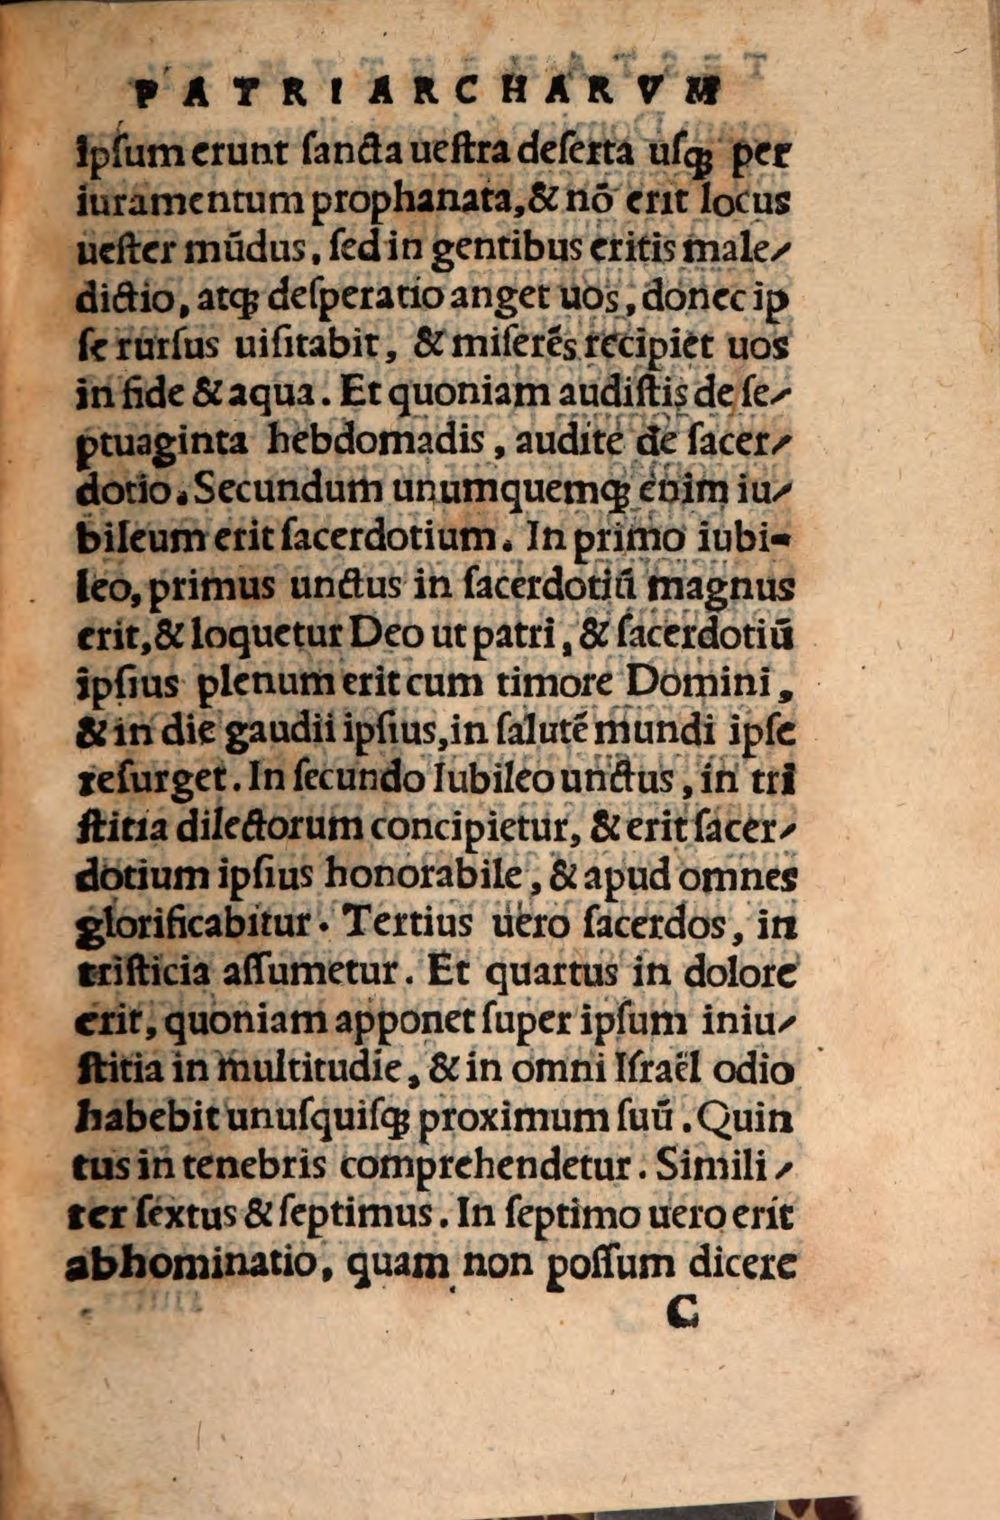 PATRIARCHARVM
ipſum erunt ſancta ueſtra deſerta uſq; per
iuramentum prophanata, & nō erit locus
ueſter mūdus, ſed in gentibus eritis male⸗
dictio, atq; deſperatio anget uos, donec ip
ſe rurſus uiſitabit, & miſerēs recipiet uos
in fide & aqua. Et quoniam audiſtis de ſe⸗
ptuaginta hebdomadis, audite de ſacer⸗
dotio. Secundum unumquemq; enim iu⸗
bileum erit ſacerdotium. In primo iubi-
leo, primus unctus in ſacerdotiū magnus
erit, & loquetur Deo ut patri, & ſacerdotiū
ipſius plenum erit cum timore Domini,
& in die gaudii ipſius, in ſalutē mundi ipſe
reſurget. In ſecundo Iubileo unctus, in tri
ſtitia dilectorum concipietur, & erit ſacer⸗
dotium ipſius honorabile, & apud omnes
glorificabitur. Tertius uero ſacerdos, in
triſticia aſſumetur. Et quartus in dolore
erit, quoniam apponet ſuper ipſum iniu⸗
ſtitia in multitudie, & in omni Iſraël odio
habebit unuſquiſq; proximum ſuū. Quin
tus in tenebris comprehendetur. Simili⸗
ter ſextus & ſeptimus. In ſeptimo uero erit
abhominatio, quam non poſſum dicere
C